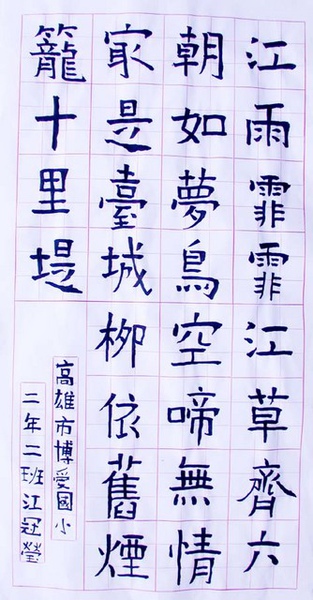 江雨霏霏江草齊六
朝如夢鳥空啼無情
㝡是臺城柳依舊煙
籠十里堤
高雄市博愛國小
二年二班江冠瑩